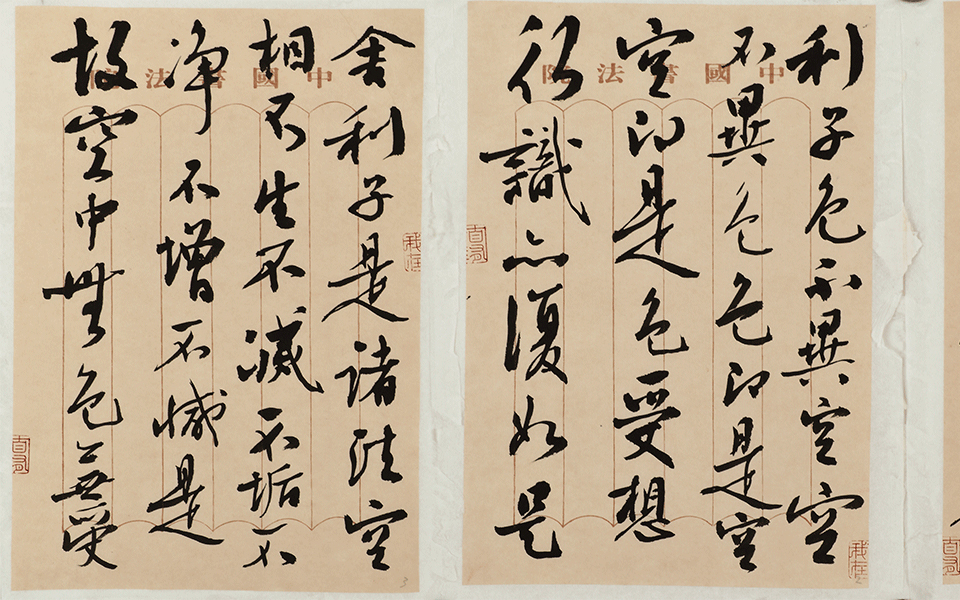 中國書法院
利子色不異空空
不異色色即是空
空即是色受想
行識亦復如是
中國書法院
舍利子是諸法空
相不生不滅不垢不
淨不增不減是
故空中無色無受